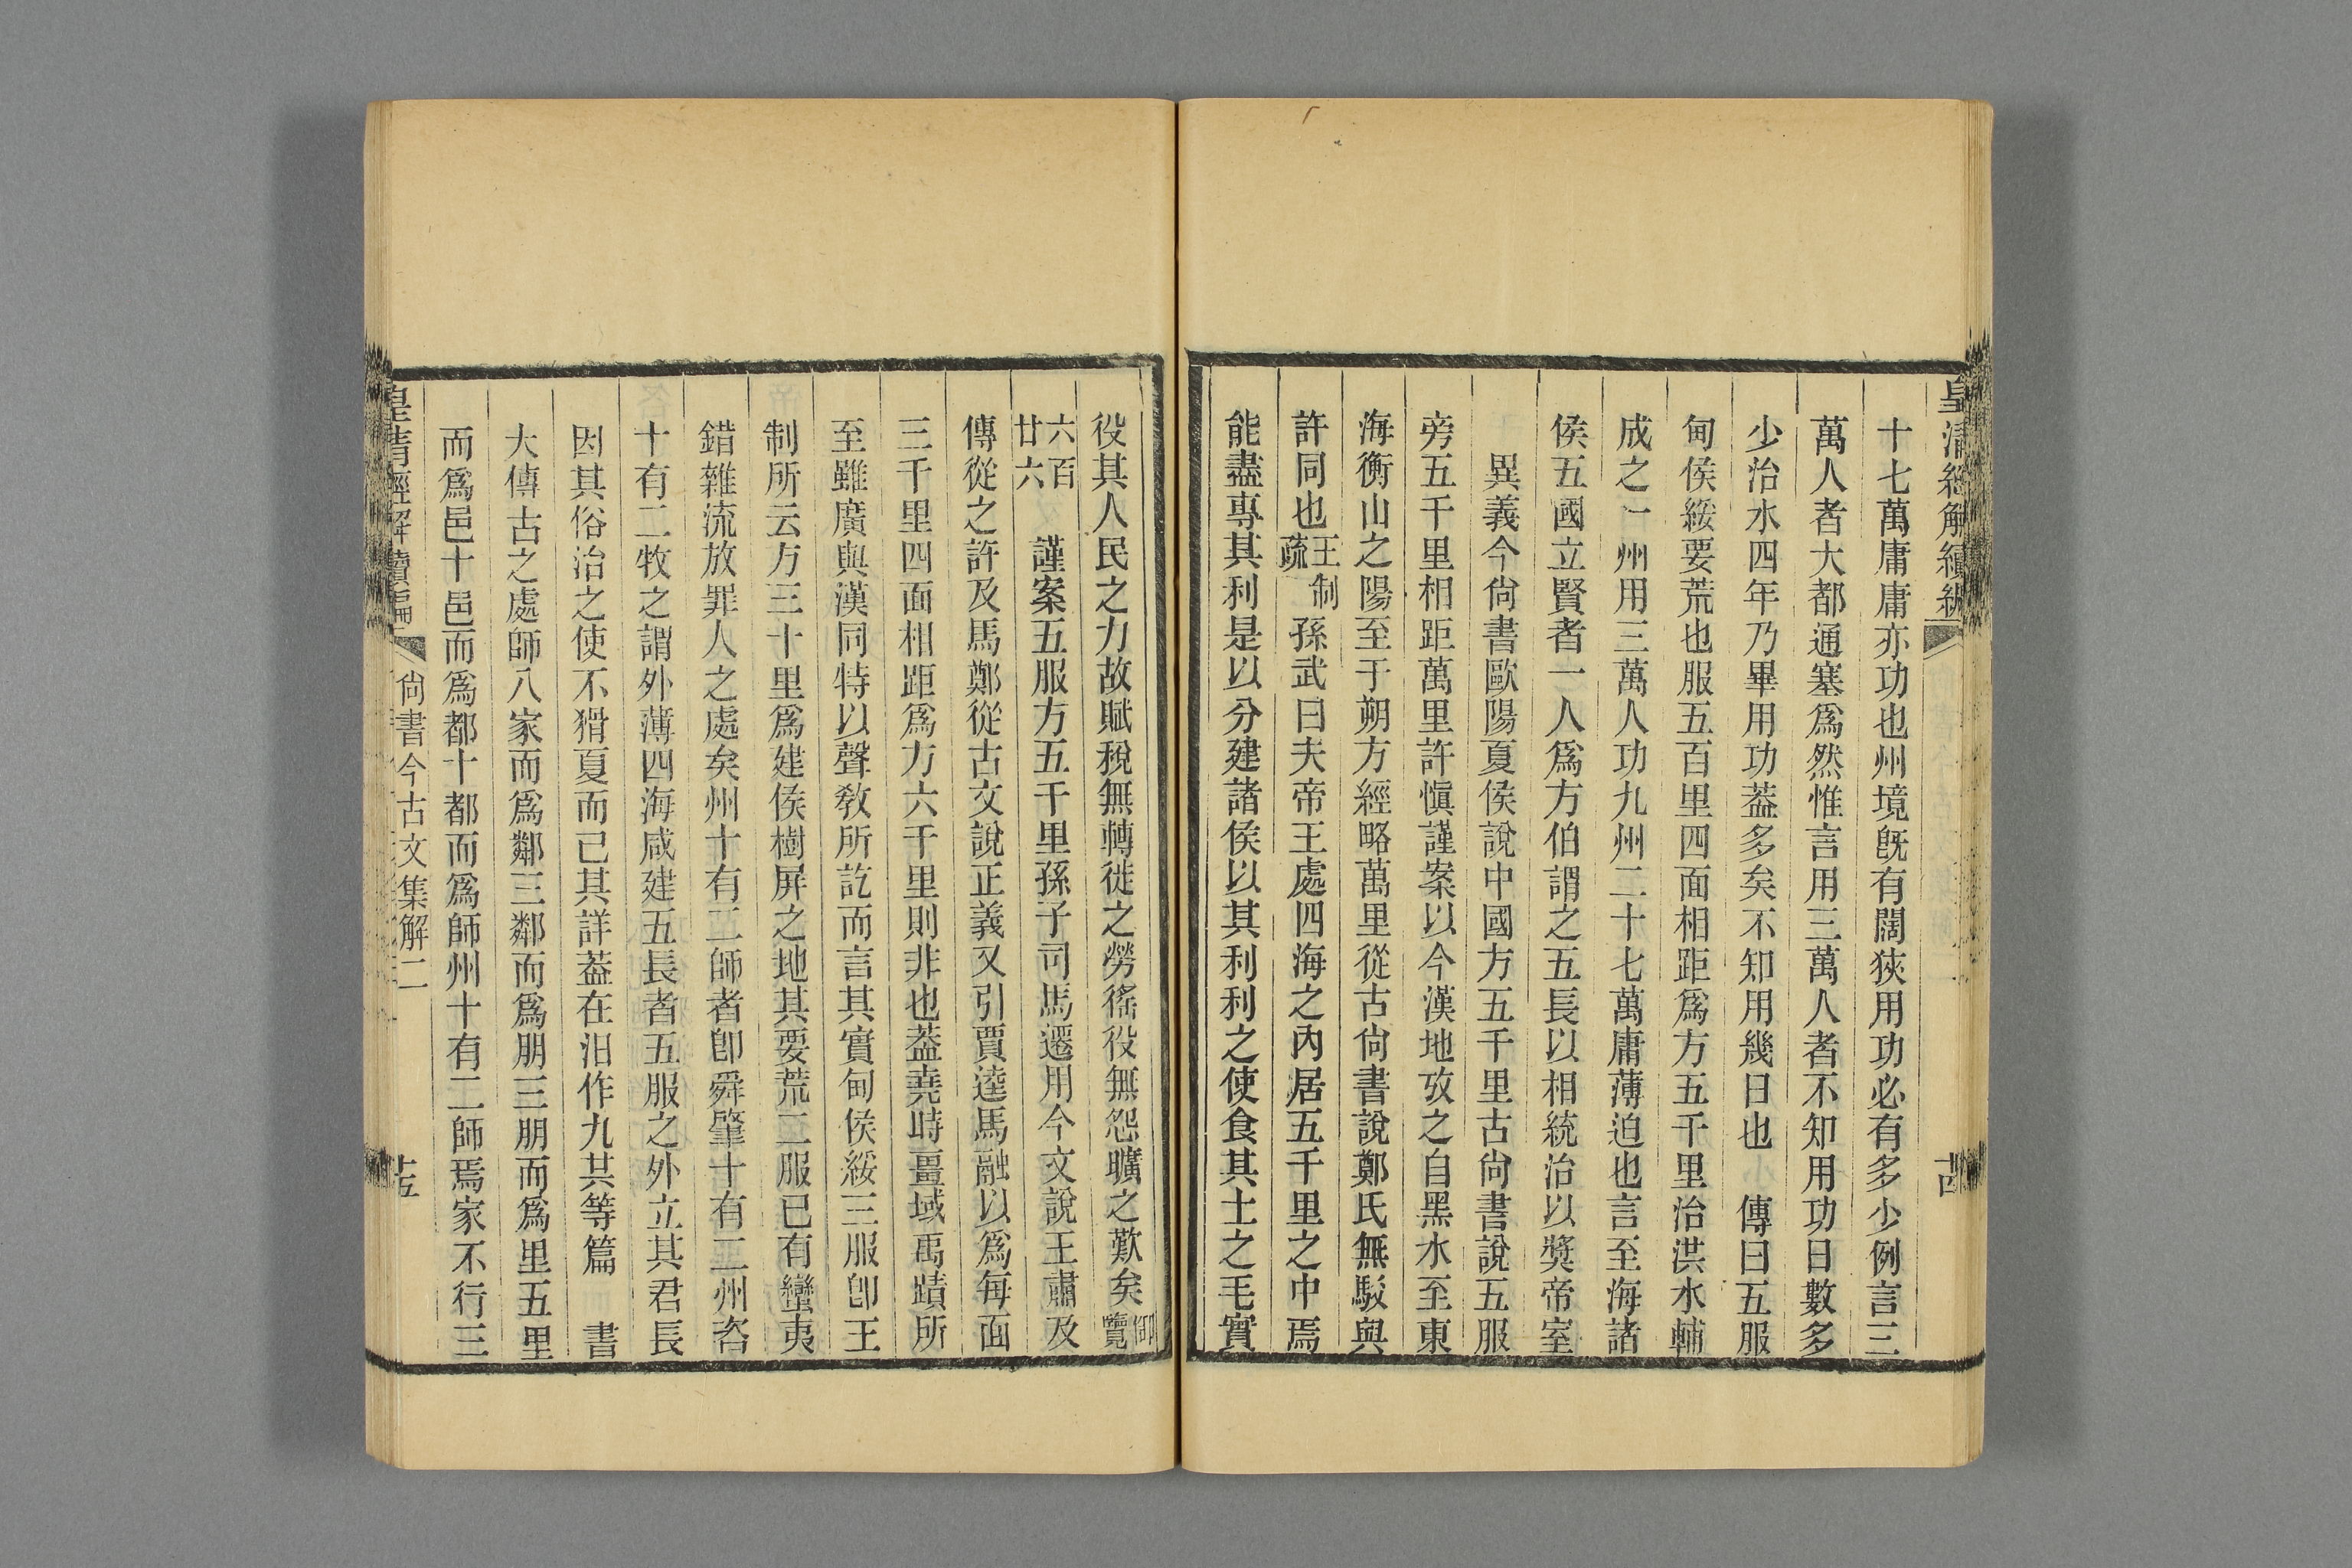 十七萬庸庸亦功也州境旣有闊狹用功必有多少例言三
萬人者大都通塞爲然惟言用三萬人者不知用功日數多
少治水四年乃畢用功葢多矣不知用幾日也　傳曰五服
甸侯綏要荒也服五百里四面相距爲方五千里治洪水輔
成之一州用三萬人功九州二十七萬庸薄迫也言至海諸
侯五國立賢者一人爲方伯謂之五長以相統治以獎帝室
異義今尙書歐陽夏侯說中國方五千里古尙書說五服
旁五千里相距萬里許愼謹案以今漢地攷之自黑水至東
海衡山之陽至于朔方經略萬里從古尙書說鄭氏無駁與
許同也王制疏　孫武曰夫帝王處四海之內居五千里之中焉
能盡專其利是以分建諸侯以其利利之使食其土之毛實
役其人民之力故賦稅無轉徙之勞徭役無怨曠之歎矣御覽
六百廿六　謹案五服方五千里孫子司馬遷用今文說王肅及
傳從之許及馬鄭從古文說正義又引賈逵馬融以爲每面
三千里四面相距爲方六千里則非也葢堯時畺域禹蹟所
至雖廣與漢同特以聲敎所訖而言其實甸侯綏三服卽王
制所云方三千里爲建侯樹屏之地其要荒二服已有蠻夷
錯雜流放罪人之處矣州十有二師者卽舜肇十有二州咨
十有二牧之謂外薄四海咸建五長者五服之外立其君長
因其俗治之使不猾夏而已其詳葢在汨作九共等篇　書
大傳古之處師八家而爲鄰三鄰而爲朋三朋而爲里五里
而爲邑十邑而爲都十都而爲師州十有二師焉家不行三
皇淸經解續編
尙書今古文集解二
十五